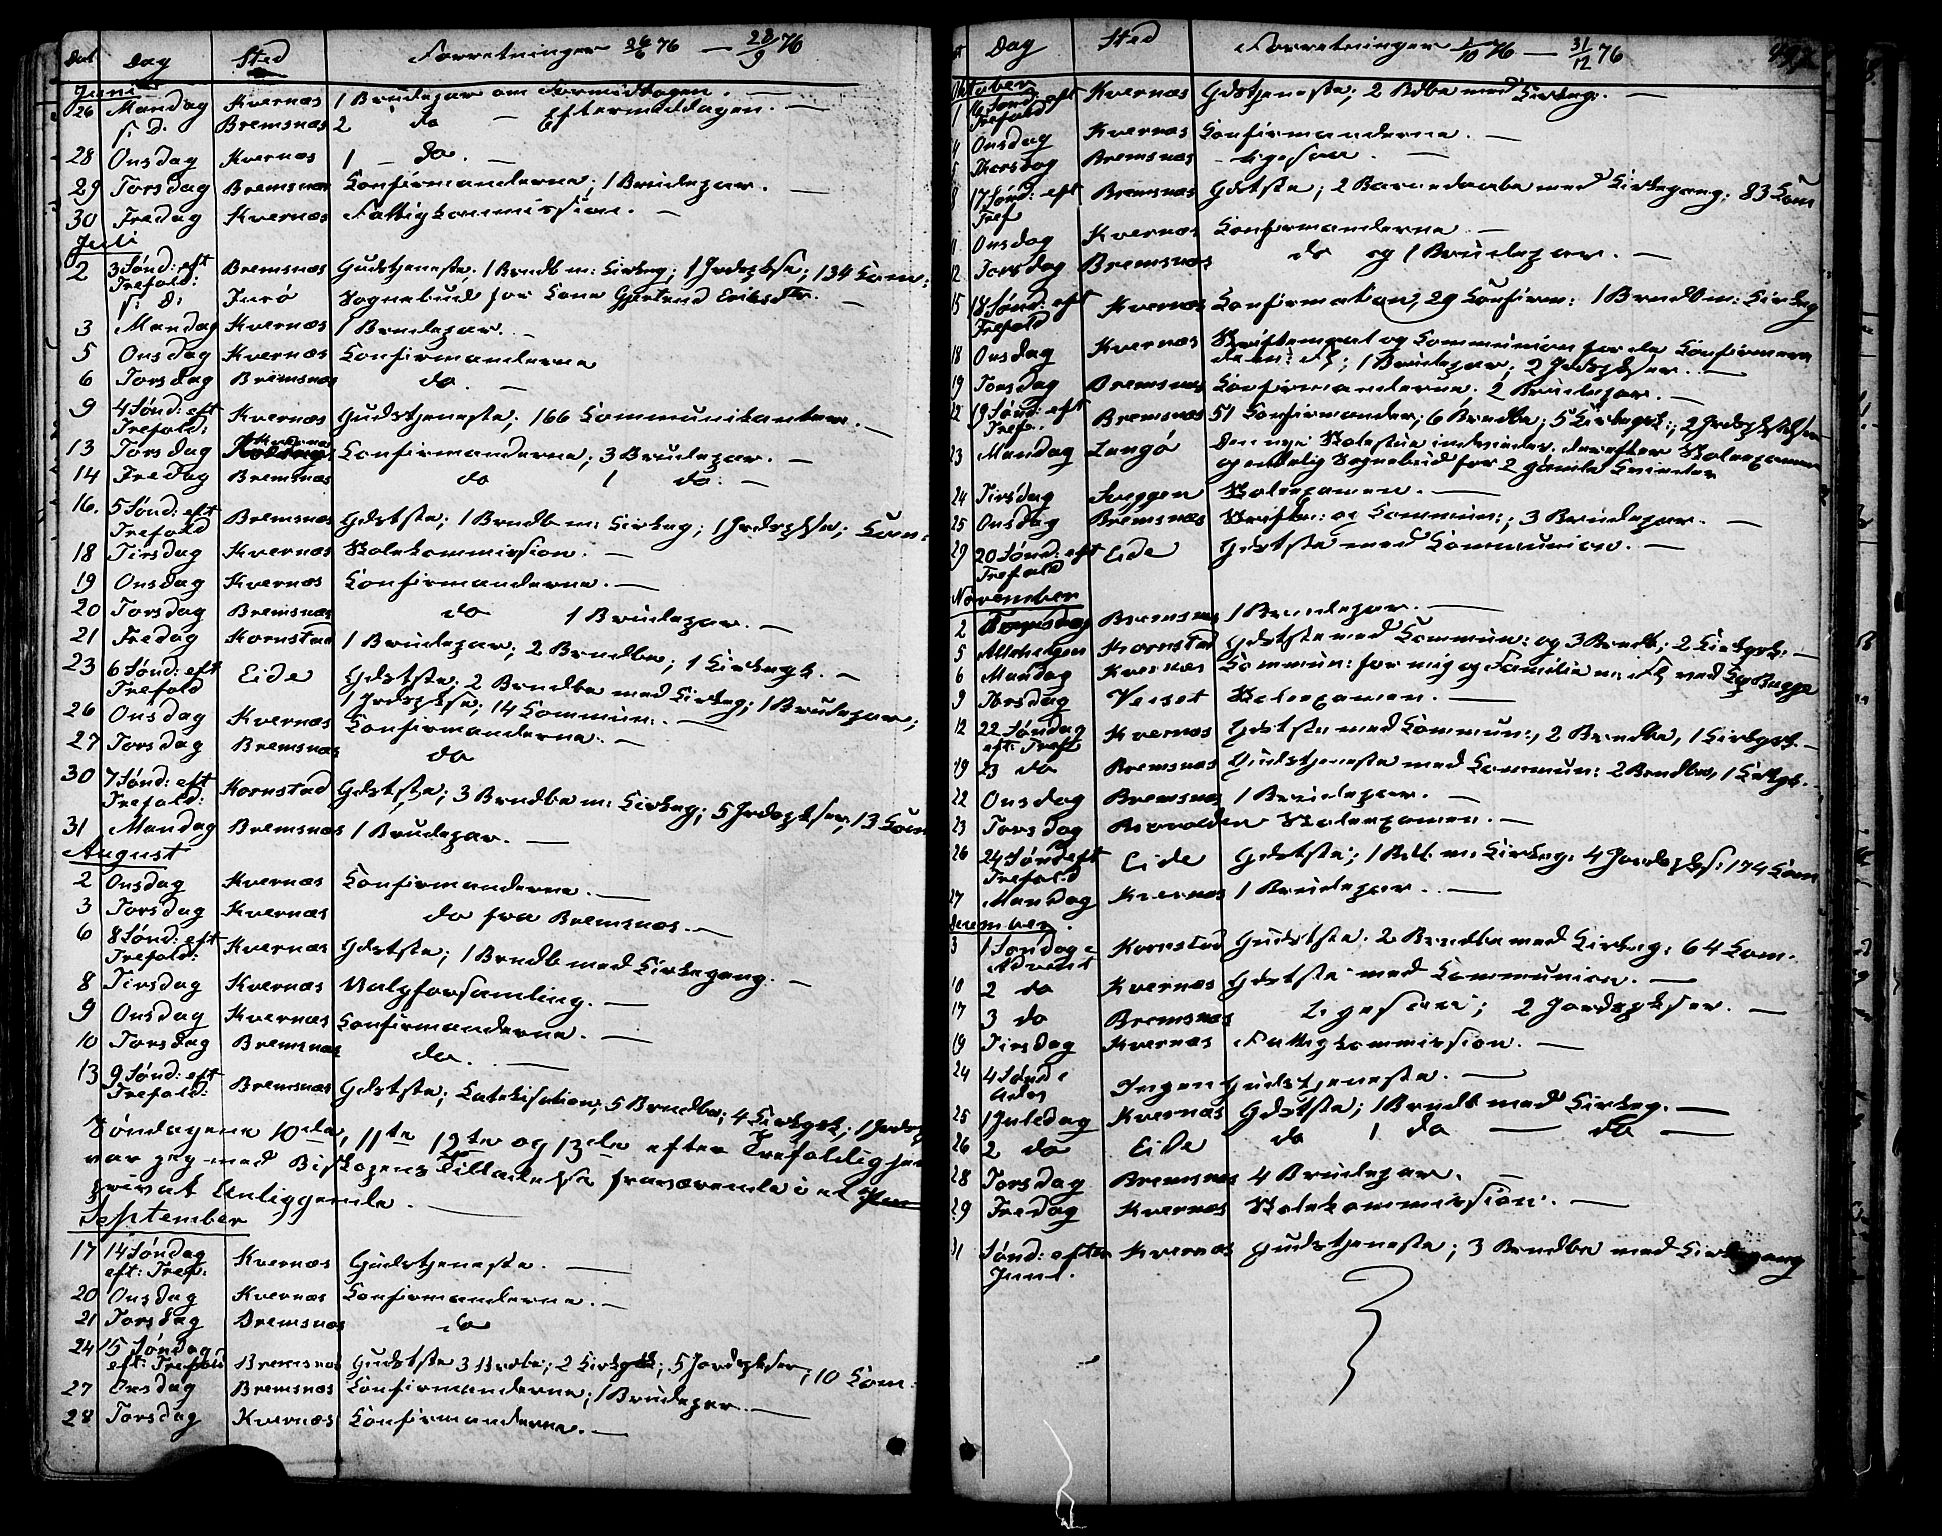 Dat Dag Sted Forretninger 26/6 76 — 28/9 76
Juni
26 Mandag Kvernæs 1 Brudepar om Formiddagen. —
s. d. Bremsnæs 2 do — Eftermiddagen. —
28 Onsdag Kvernæs 1 — do. —
29 Torsdag Bremsnæs Confirmanderne; 1 Brudepar. —
30 Fredag Kvernæs Fattigkommission. —
Juli
2 3 Sønd: eft Trefold: Bremsnæs Gudstjeneste. 1 Brndb m: Kirkeg; 1 Jrdspkse; 134 Com:
s. d: Sognebud for Kone Gjertrud Eriksdtr. —
3 Mandag Kvernæs 1 Brudepar. —
5 Onsdag Kvernæs Confirmanderne
6 Torsdag Bremsnæs do. —
9 4 Sønd: eft Trefold: Kvernæs Gudstjeneste; 166 Communikanter. —
13 Torsdag Kvernæs Confirmanderne; 3 Brudepar. —
14 Fredag Bremsnæs do 1 do. —
16. 5 Sønd: eft Trefold Bremsnæs Gdstste; 1 Brndb m: Kirkeg; 1 Jrdspkse; Com:
18 Tirsdag Kvernæs Skolekommission. —
19 Onsdag Kvernæs Confirmanderne. —
20 Torsdag Bremsnæs do 1 Brudepar. —
21 Fredag Kornstad 1 Brudepar; 2 Brndbe; 1 Kirkegk. —
23 6 Sønd: eft Trefold Eide Gdstste; 2 Brndbe med Kirkeg; 1 Brudepar;
1 Jrdspkse; 14 Commun: —
26 Onsdag Kvernæs Confirmanderne. —
27 Torsdag Bremsnæs do
30 7 Sønd: eft Trefold: Kornstad Gdstste; 3 Brndbe m: Kirkeg; 5 Jrdspkser; 13 Com
31 Mandag Bremsnæs 1 Brudepar. —
August
2 Onsdag Kvernæs Confirmanderne. —
3 Torsdag Kvernæs do fra Bremsnæs. —
6 8 Sønd: eft Trefold: Kvernæs Gdstste; 1 Brndb med Kirkegang. —
8 Tirsdag Kvernæs Valgforsamling. —
9 Onsdag Kvernæs Confirmanderne. —
10 Torsdag Bremsnæs do. —
13 9 Sønd: eft Trefold: Bremsnæs Gdstste; Katekisation; 5 Brndbe; 4 Kirkegk; 1 Jrdsp
Søndagene 10de, 11te 12te og 13de efter Trefoldighed
var jeg med Biskopens Tilladelse fraværende i et
privat Anliggende. —
September
17 14 Søndag eft: Tref: Kvernæs Gudstjeneste. —
20 Onsdag Kvernæs Confirmanderne. —
21 Torsdag Bremsnæs do
24 15 Søndag eft: Trefold Bremsnæs Gudstste 3 Brdbe; 2 Kirkegk; 5 Jordspkser; 10 Com:
27 Onsdag Bremsnæs Confirmanderne; 1 Brudepar. —
28 Torsdag Kvernæs Confirmanderne. —
Dag Sted Forretninger 1/10 76 — 31/12 76
October
1 16 Sønd: eft Trefold Kvernæs Gdstjeneste; 2 Bdbe med Kirkeg. —
4 Onsdag Kvernæs Confirmanderne. —
5 Thorsdag Bremsnæs — ligesaa. —
8 17 Sønd: eft Tref Bremsnæs Gdstste; 2 Barnedaabe med Kirkegang; 83 Com
11 Onsdag Kvernæs Confirmanderne. —
12 Torsdag Bremsnæs do og 1 Brudepar. —
15 18 Sønd: eft Trefold Kvernæs Confirmation, 29 Confirm: 1 Brndb m: Kirkeg
18 Onsdag Kvernæs Skriftemaal og Communion for de Confirmere
de m: Fl; 1 Brudepar; 2 Jrdspkser. —
19 Torsdag Bremsnæs Confirmanderne; 2 Brudepar. —
22 19 Sønd: eft Trefo. Bremsnæs 51 Confirmander; 6 Brndbe; 5 Kirkegk:; 2 Jrdspkelser
23 Mandag Langø Den nye Skolestue indvies, derefter Skoleexamen
og endelig Sognebud for 2 gamle Kvinder
24 Tirsdag Sveggen Skoleexamen. —
25 Onsdag Bremsnæs Skriftem: og Commun:; 3 Brudepar. —
29 20 Sønd: eft Trefold Eide Gdstste med Communion. —
November
2 Torsdag Bremsnæs 1 Brudepar. —
5 Allehelgen Kornstad Gdstste med Commun: og 3 Brndb; 2 Kirkegk: —
6 Mandag Kvernæs Commun: for mig og Familie m: Fl ved Bugge
9 Torsdag Veiset Skoleexamen. —
12 22 Søndag eft: Tref Kvernæs Gdstste med Commun:, 2 Brndbe, 1 Kirkegk. —
19 23 do Bremsnæs Gudstjeneste med Commun: 2 Brndbe, 1 Kirkgk. —
22 Onsdag Bremsnæs 1 Brudepar. —
23 Torsdag Skoleexamen. —
26 24 Sønd eft Trefold Eide Gdstste; 1 Bdb m. Kirkeg; 4 Jordspks: 174 Com
27 Mandag Kvernæs 1 Brudepar. —
December.
3 1 Søndag i Advent Kornstad Gudstste. 2 Brndbe med Kirkeg; 64 Com.
10 2 do Kvernæs Gdstste med Communion. —
17 3 do Bremsnæs Ligesaa; 2 Jordspkser. —
19 Tirsdag Kvernæs Fattigkommission. —
24 4 Sønd i Adv Ingen Gudstjeneste. —
25 1 Juledag Kvernæs Gdstste; 1 Brndb med Kirkeg. —
26 2 do Eide do 1 do — do —
28 Torsdag Bremsnæs 4 Brudepar. —
29 Fredag Kvernæs Skolekommission. —
31 Sønd: efter Juul. Kvernæs Gudstjeneste; 3 Brndbe med Kirkegang